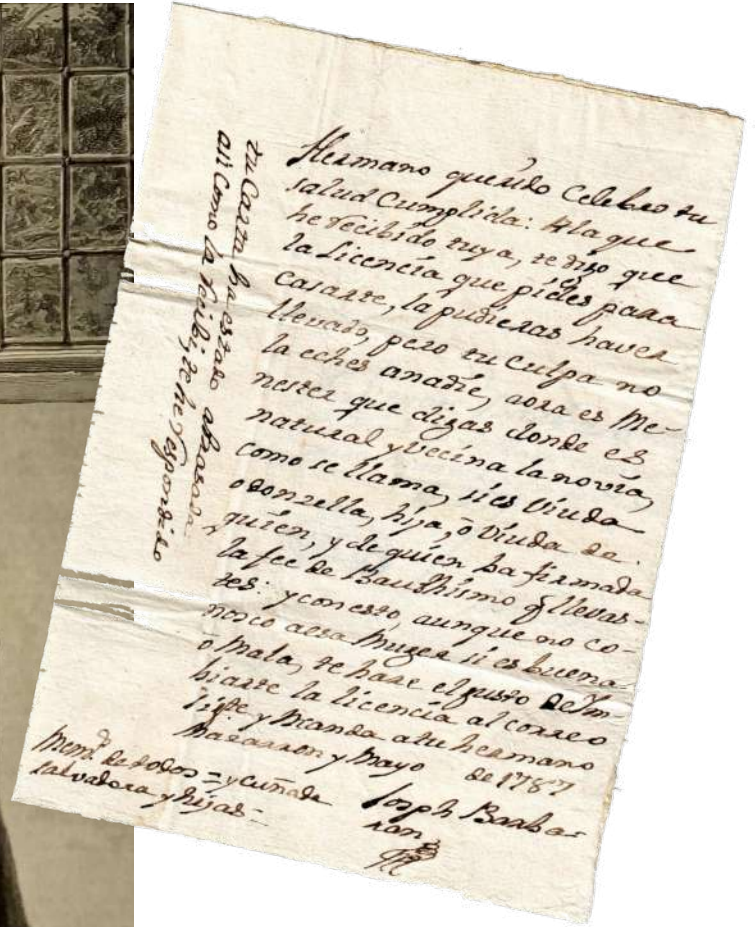 Hermano querido celebro tu
salud Cumplida: A la que
he recibido tuya, te digo que
la Licencia que pides para
Casarte, la pudieras haver
llevado, pero tu culpa no
la eches anadie, aora es Me-
nester que digas donde es
natural y vecina la novia,
como se llama, si es Viuda
o donzella, hija, ô Viuda de
quien, y de quien ba firmada
la fee de Bauthismo q llevas-
tes: y con esto, aunque no co-
nosco aesa Muger si es buena
o Mala, te hare el gusto de Im-
biarte la licencia al correo
y Manda atu hermano
Mazarron y Mayo de 1787
Joseph Barba-
ran
Mem.s de todos = y cuñada
salvadora y hijas =
tu Carta ha estado atrasada
asi Como la Recibi, te he respondido